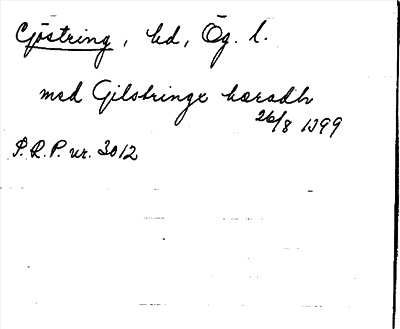 Göstring, hd, Ög. l.
med Gilstringx hæradh
26/8 1399
S.R.P. nr. 3012